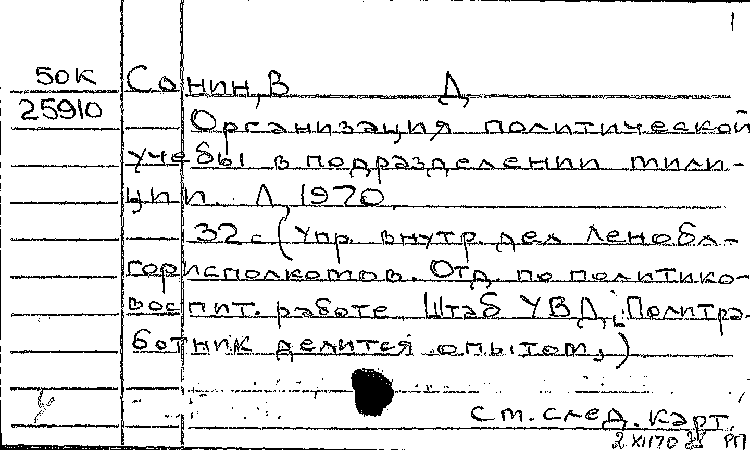 1
50К Сонин, В Д,
25910 Организация политической
учебы в подразделении мили-
ции. Л, 1970.
32с (Упр. внутр. дел Леноблг-
горисполкомов. Отд. по политико-
воспит. работе Штаб УВД, Политра-
ботник делится опытом,)
См. след. карт.
2 XII 70 РП